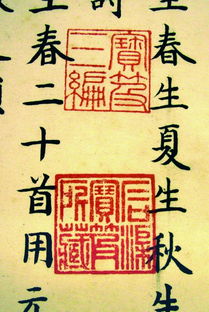 生春生夏生秋生
寶笈三編
石渠寶笈所藏
生春二十首用元